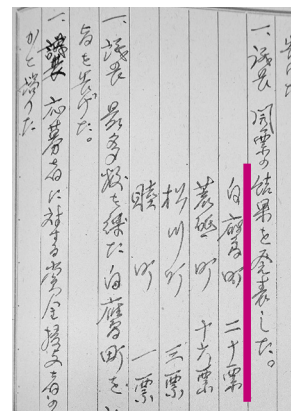 告げた
一、議長 開票の結果を発表した。
白鷹町 二十票
荒砥町 十六票
松川町 三票
睦町 一票
一、議長 最多数を得た白鷹町を
旨を告げた。
一、議長 応募者に対する賞金授与者の
かと諮つた